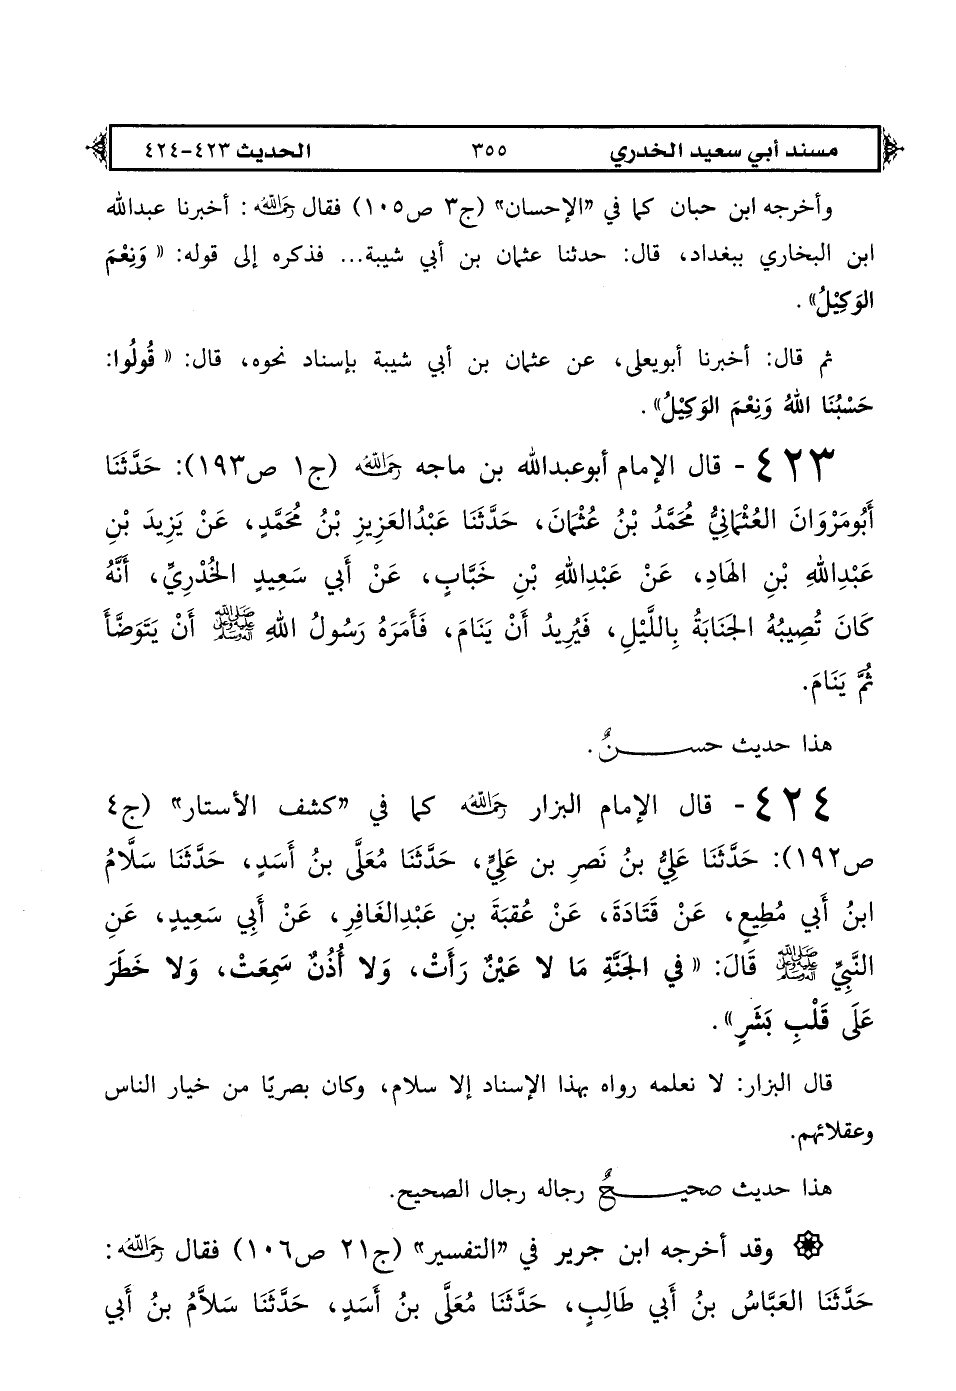 مسند أبي سعيد الخدري ٣٥٥ الحديث ٤٢٣-٤٢٤
وأخرجه ابن حبان كما في «الإحسان» (ج٣ ص١٠٥) فقال رحمه الله: أخبرنا عبدالله
ابن البخاري ببغداد، قال: حدثنا عثمان بن أبي شيبة... فذكره إلى قوله: «وَنِعْمَ
الوَكِيْلُ».
ثم قال: أخبرنا أبويعلى، عن عثمان بن أبي شيبة بإسناد نحوه، قال: «قُولُوا:
حَسْبُنَا اللهُ وَنِعْمَ الوَكِيْلُ».
٤٢٣- قال الإمام أبوعبدالله بن ماجه رحمه الله (ج١ ص١٩٣): حَدَّثَنَا
أَبُومَرْوَانَ العُثْمَانِيُّ مُحَمَّدُ بْنُ عُثْمَانَ، حَدَّثَنَا عَبْدُالعَزِيزِ بْنُ مُحَمَّدٍ، عَنْ يَزِيدَ بْنِ
عَبْدِاللهِ بْنِ الهَادِ، عَنْ عَبْدِاللهِ بْنِ خَبَّابٍ، عَنْ أَبي سَعِيدٍ الخُدْرِيِّ، أَنَّهُ
كَانَ تُصِيبُهُ الجَنَابَةُ بِاللَّيْلِ، فَيُرِيدُ أَنْ يَنَامَ، فَأَمَرَهُ رَسُولُ اللهِ ﷺ أَنْ يَتَوَضَّأَ
ثُمَّ يَنَامَ.
هذا حديث حســـنٌ.
٤٢٤- قال الإمام البزار رحمه الله كما في «كشف الأستار» (ج٤
ص١٩٢): حَدَّثَنَا عَلِيُّ بنُ نَصرِ بن عَلِيٍّ، حَدَّثَنَا مُعَلَّى بنُ أَسَدٍ، حَدَّثَنَا سَلَّامُ
ابنُ أَبي مُطِيعٍ، عَنْ قَتَادَةَ، عَنْ عُقبَةَ بنِ عَبْدِالغَافِرِ، عَنْ أَبي سَعِيدٍ، عَنِ
النَّبِيِّ ﷺ قَالَ: «في الجَنَّةِ مَا لا عَيْنٌ رَأَتْ، وَلا أُذُنٌ سَمِعَتْ، وَلا خَطَرَ
عَلَى قَلْبِ بَشَرٍ».
قال البزار: لا نعلمه رواه بهذا الإسناد إلا سلام، وكان بصريًا من خيار الناس
وعقلائهم.
هذا حديث صحيـــحٌ رجاله رجال الصحيح.
وقد أخرجه ابن جرير في «التفسير» (ج٢١ ص١٠٦) فقال رحمه الله:
حَدَّثَنَا العَبَّاسُ بنُ أَبي طَالِبٍ، حَدَّثَنَا مُعَلَّى بنُ أَسَدٍ، حَدَّثَنَا سَلاَّمُ بنُ أَبي